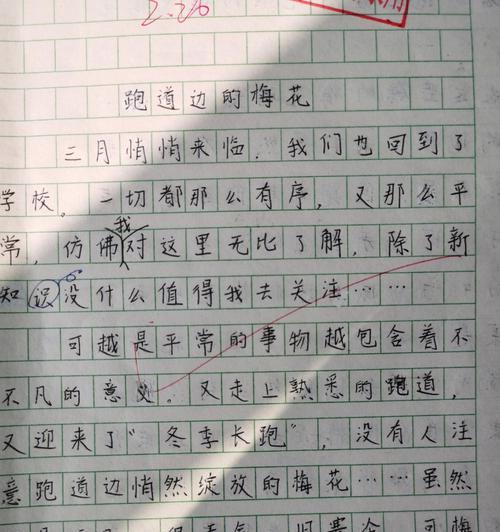 2.26
跑道边的梅花
三月悄悄来临，我们也回到了
学校。一切都那么有序，又那么平
常，仿佛我对这里无比了解，除了新
知识没什么值得我去关注……
可越是平常的事物越包含着不
不凡的意义。又走上熟悉的跑道，
又迎来了"冬季长跑"，没有人注
意跑道边悄然绽放的梅花……虽然